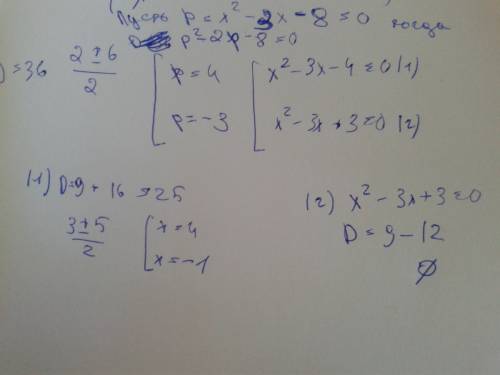 Пусть p = x² - 3x - 8 = 0 тогда
p² - 2p - 8 = 0
D = 36 (2 ± 6)/2 [ p = 4 [ x² - 3x - 4 = 0 (1)
p = -3 x² - 3x + 3 = 0 (2)
(1) D = 9 + 16 = 25
(3 ± 5)/2 [ x = 4
x = -1
(2) x² - 3x + 3 = 0
D = 9 - 12
∅